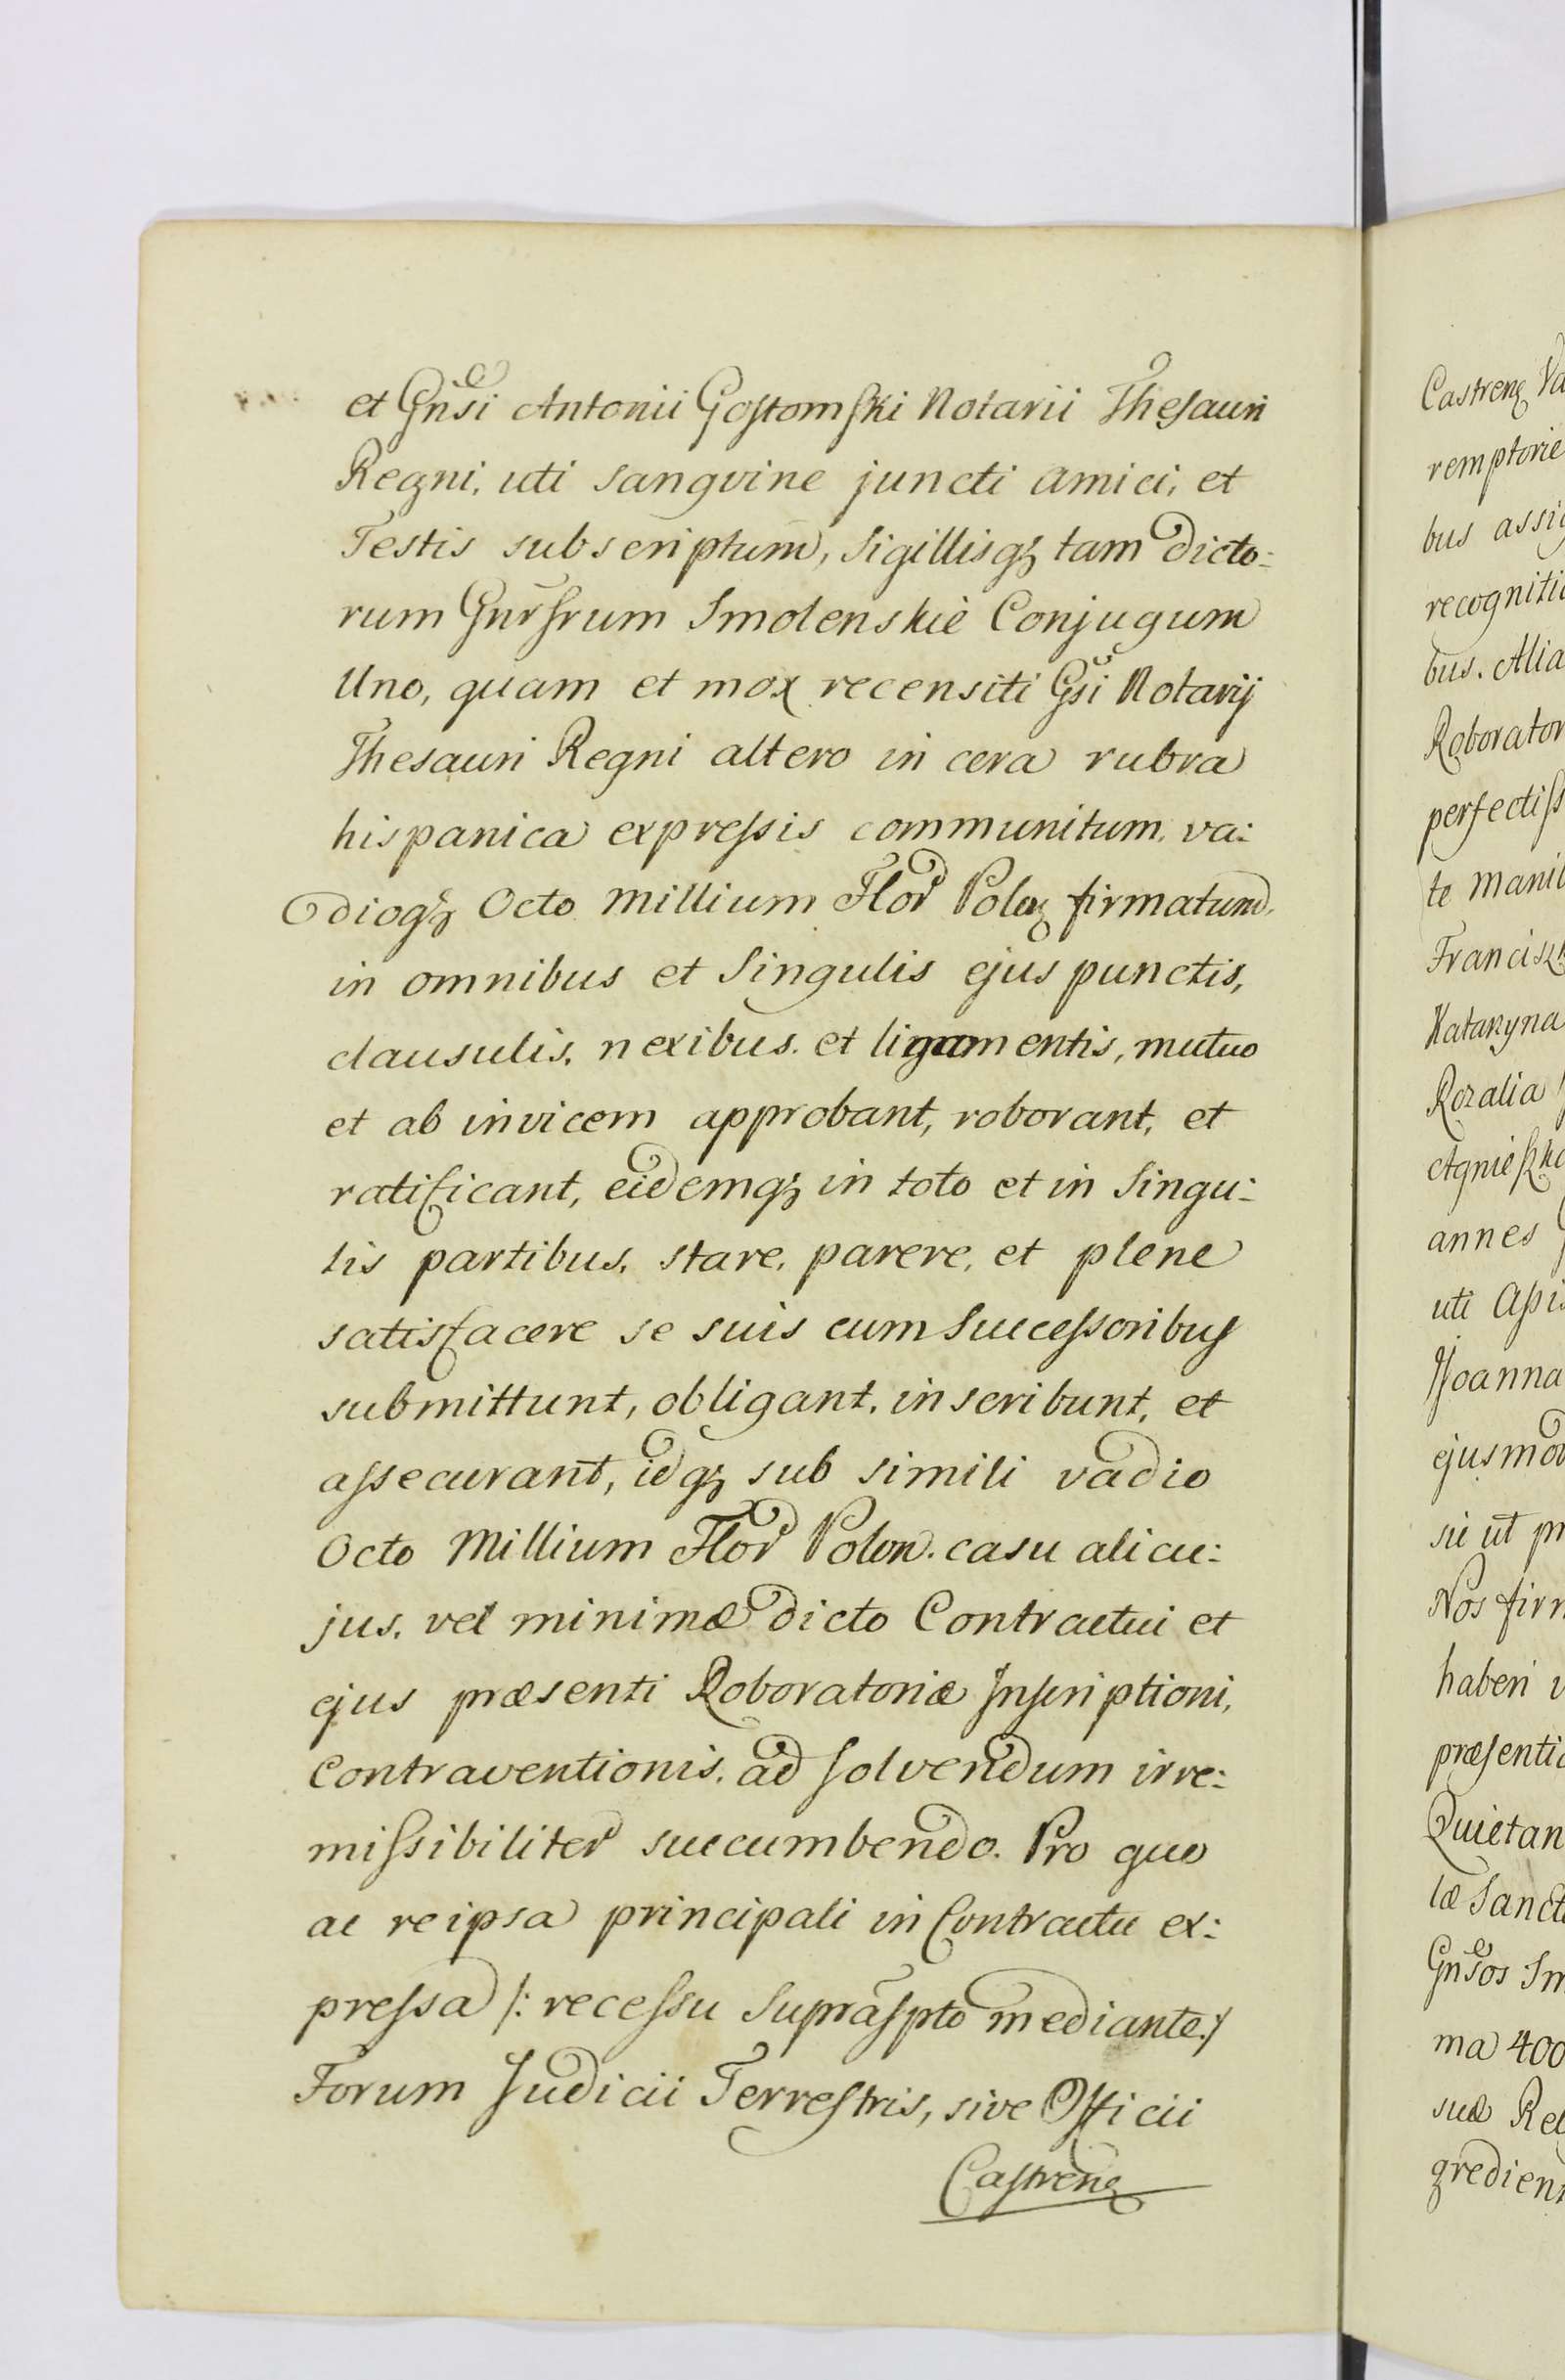 et Gnsi Antonii Gostomski Notarii Thesauri
Regni, uti sangvine juncti amici, et
Testis subscriptum, sigillisqꝫ tam dicto-
rum Gnrsrum Smolenskie Conjugum
Uno, quam et mox recensiti Gsi Notarij
Thesauri Regni altero in cera rubra
hispanica expressis communitum, va-
dioqꝫ Octo Millium Flor Polon firmatum
in omnibus et singulis ejus punctis,
clausulis, nexibus et ligamentis, mutuo
et ab invicem approbant, roborant, et
ratificant, eidemqꝫ in toto et in singu-
lis partibus, stare, parere, et plene
satisfacere se suis cum successoribus
submittunt, obligant, inscribunt, et
assecurant, idqꝫ sub simili vadio
Octo Millium Flor Polon. casu alicu-
jus, vel minimæ dicto Contractui et
ejus præsenti Roboratoriæ Inscriptioni,
Contraventionis, ad solvendum irre-
missibiliter succumbendo. Pro quo
ac reipsa principali in Contractu ex-
pressa /: recessu suprãspto mediante :/
Forum Judicii Terrestris, sive Officii
Castreñ
Castreñ
remptorie
bus
recogniti
bus. Alia
Roborator
perfectiss
te Manib
Francisz
Katarzyna
Rozalia
Agnieszka
annes
uti Assi
Joanna
ejusmod
sic ut
Nos firm
haberi
præsenti
Quietan
læ Sanct
Gnsos Sm
ma 400
suæ Rel
gredien